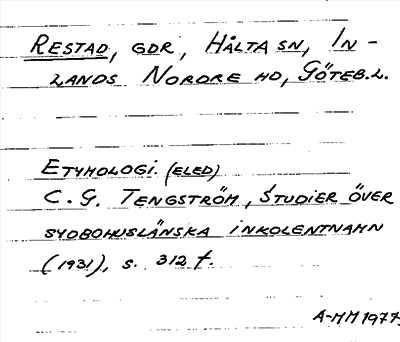 RESTAD, GDR, HÅLTA SN, IN-
LANDS NORDRE HD, GÖTEB.L.
ETYMOLOGI. (ELED)
C. G. TENGSTRÖM, STUDIER ÖVER
SYDBOHUSLÄNSKA INKOLENTNAMN
(1931), S. 312 f.
A-MM 1977